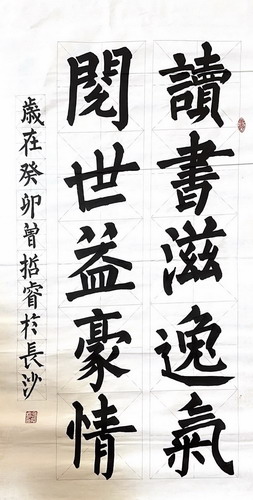 讀書滋逸氣
閱世益豪情
歲在癸卯曾哲睿於長沙